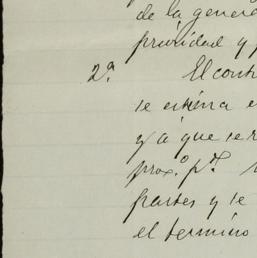 de la genera
prioridad y p
2ª. El contr
se estima e
y á que se r
prox.º p.r
partes y se
el termino